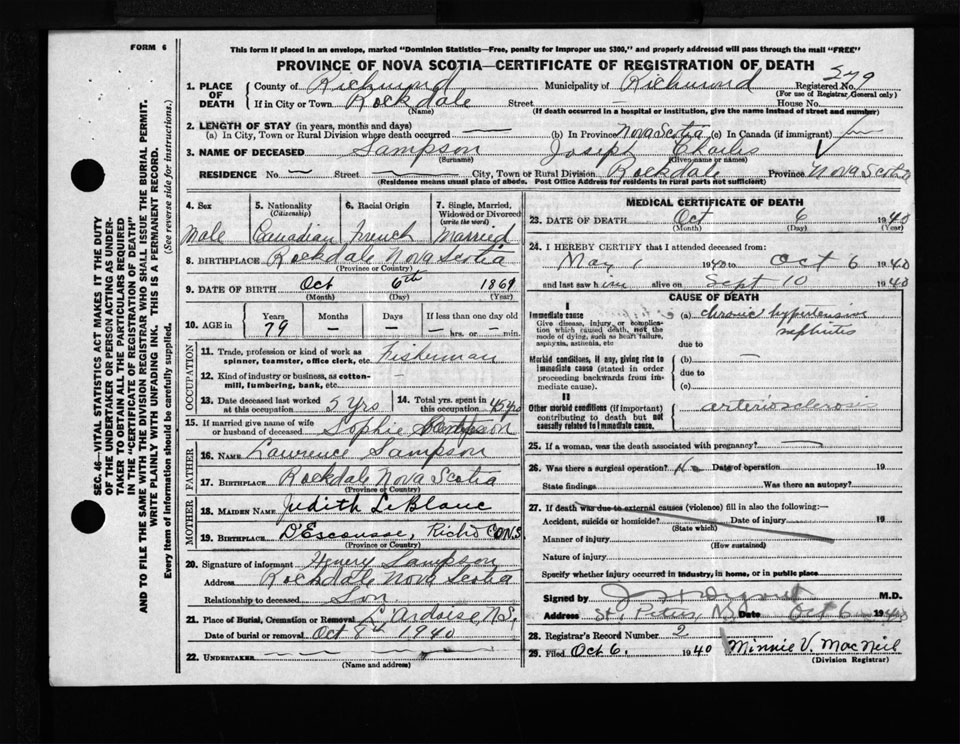 FORM 6
This form if placed in an envelope, marked "Dominion Statistics—Free, penalty for improper use $300," and properly addressed will pass through the mail "FREE"
PROVINCE OF NOVA SCOTIA—CERTIFICATE OF REGISTRATION OF DEATH
SEC. 46—VITAL STATISTICS ACT MAKES IT THE DUTY
OF THE UNDERTAKER OR PERSON ACTING AS UNDER-
TAKER TO OBTAIN ALL THE PARTICULARS REQUIRED
IN THE "CERTIFICATE OF REGISTRATION OF DEATH"
AND TO FILE THE SAME WITH THE DIVISION REGISTRAR WHO SHALL ISSUE THE BURIAL PERMIT.
WRITE PLAINLY WITH UNFADING INK. THIS IS A PERMANENT RECORD.
Every item of information should be carefully supplied. (See reverse side for instructions.)
1. PLACE OF DEATH County of Richmond Municipality of Richmond Registered No. 579
(For use of Registrar General only)
If in City or Town Rockdale Street — House No.
(If death occurred in a hospital or institution, give the name instead of street and number)
2. LENGTH OF STAY (in years, months and days)
(a) In City, Town or Rural Division where death occurred — (b) In Province Nova Scotia (c) In Canada (if immigrant)
3. NAME OF DECEASED Sampson Joseph Charles
(Surname) (Given name or names)
RESIDENCE No. — Street — City, Town or Rural Division Rockdale Province Nova Scotia
(Residence means usual place of abode. Post Office Address for residents in rural parts not sufficient)
4. Sex 5. Nationality (Citizenship) 6. Racial Origin 7. Single, Married, Widowed or Divorced (write the word)
Male Canadian French Married
8. BIRTHPLACE Rockdale Nova Scotia
(Province or Country)
9. DATE OF BIRTH Oct 6th 1861
(Month) (Day) (Year)
10. AGE in Years Months Days If less than one day old
79 — — — hrs. or — min.
OCCUPATION
11. Trade, profession or kind of work as spinner, teamster, office clerk, etc. Fisherman
12. Kind of industry or business, as cotton-mill, lumbering, bank, etc. —
13. Date deceased last worked at this occupation 5 yrs 14. Total yrs. spent in this occupation 45 yrs
15. If married give name of wife or husband of deceased Sophie Sampson
FATHER
16. NAME Lawrence Sampson
17. BIRTHPLACE Rockdale Nova Scotia
(Province or Country)
MOTHER
18. MAIDEN NAME Judith LeBlanc
19. BIRTHPLACE D'Escousse, Rich'd CO N.S
(Province or Country)
20. Signature of informant Henry Sampson
Address Rockdale Nova Scotia
Relationship to deceased Son
21. Place of Burial, Cremation or Removal L'Ardoise N.S.
Date of burial or removal Oct 8th 1940
22. UNDERTAKER —
(Name and address)
MEDICAL CERTIFICATE OF DEATH
23. DATE OF DEATH Oct 6 1940
(Month) (Day) (Year)
24. I HEREBY CERTIFY that I attended deceased from:
May 1 1940 to Oct 6 1940
and last saw him alive on Sept 10 1940
CAUSE OF DEATH
I
Immediate cause (a) chronic hypertensive
Give disease, injury or complication which caused death, not the mode of dying, such as heart failure, asphyxia, asthenia, etc nephritis
due to
Morbid conditions, if any, giving rise to immediate cause (stated in order proceeding backwards from immediate cause). (b) —
due to
(c)
II
Other morbid conditions (if important) contributing to death but not causally related to immediate cause. arteriosclerosis
25. If a woman, was the death associated with pregnancy? —
26. Was there a surgical operation? No Date of operation 19
State findings Was there an autopsy?
27. If death was due to external causes (violence) fill in also the following:—
Accident, suicide or homicide? Date of injury 19
(State which)
Manner of injury
(How sustained)
Nature of injury
Specify whether injury occurred in industry, in home, or in public place
Signed by M.D.
Address St. Peters, N.S. Date Oct 6 1940
28. Registrar's Record Number 2
29. Filed Oct 6. 1940 Minnie V. MacNeil
(Division Registrar)